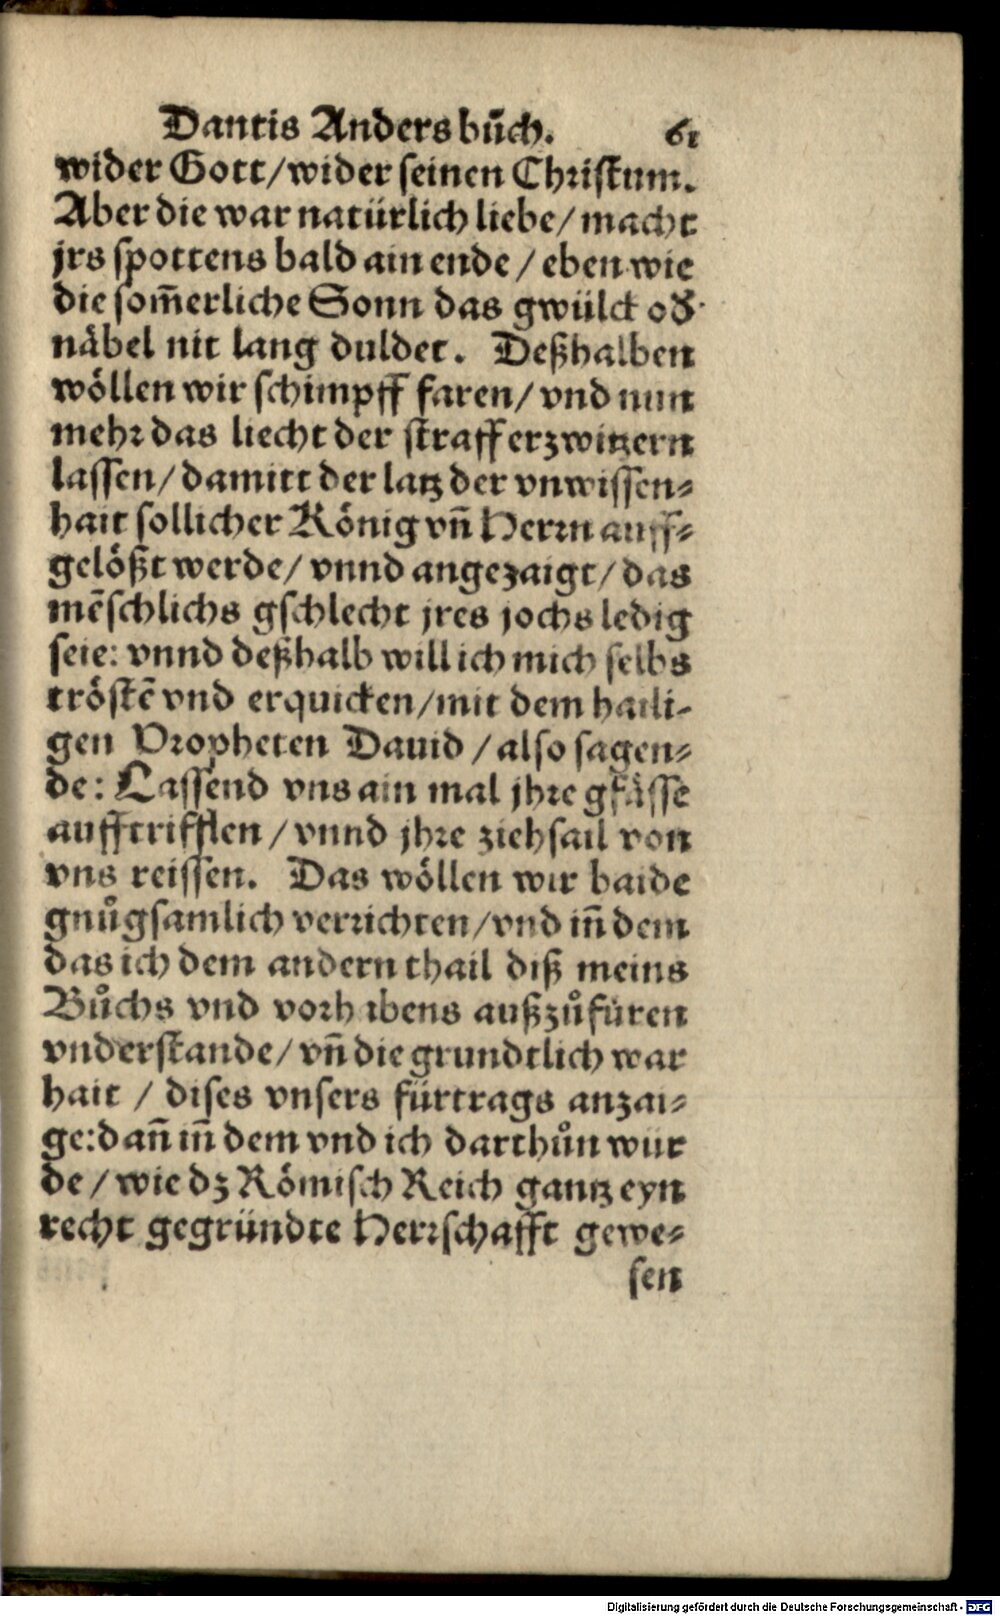 Dantis Anders bůch. 61
wider Gott/wider seinen Christum.
Aber die war natürlich liebe/ macht
jrs spottens bald ain ende / eben wie
die som̃erliche Sonn das gwülck od̕
näbel nit lang duldet. Deßhalben
wöllen wir schimpff faren/ vnd nun
mehr das liecht der straff erzwitzern
lassen/ damitt der latz der vnwissen⸗
hait sollicher König vñ Herrn auff⸗
gelößt werde/ vnnd angezaigt/ das
mẽschlichs gschlecht jres jochs ledig
seie: vnnd deßhalb will ich mich selbs
tröstẽ vnd erquicken/mit dem haili-
gen Propheten Dauid / also sagen⸗
de: Lassend vns ain mal jhre gfässe
aufftrifflen / vnnd jhre ziehsail von
vns reissen. Das wöllen wir baide
gnůgsamlich verrichten/vnd iñ dem
das ich dem andern thail diß meins
Bůchs vnd vorhabens außzůfüren
vnderstande/ vñ die grundtlich war
hait / dises vnsers fürtrags anzai⸗
ge:dañ iñ dem vnd ich darthůn wür
de / wie dz Römisch Reich gantz eyn
recht gegründte Herrschafft gewe⸗
sen
Digitalisierung gefördert durch die Deutsche Forschungsgemeinschaft - DFG